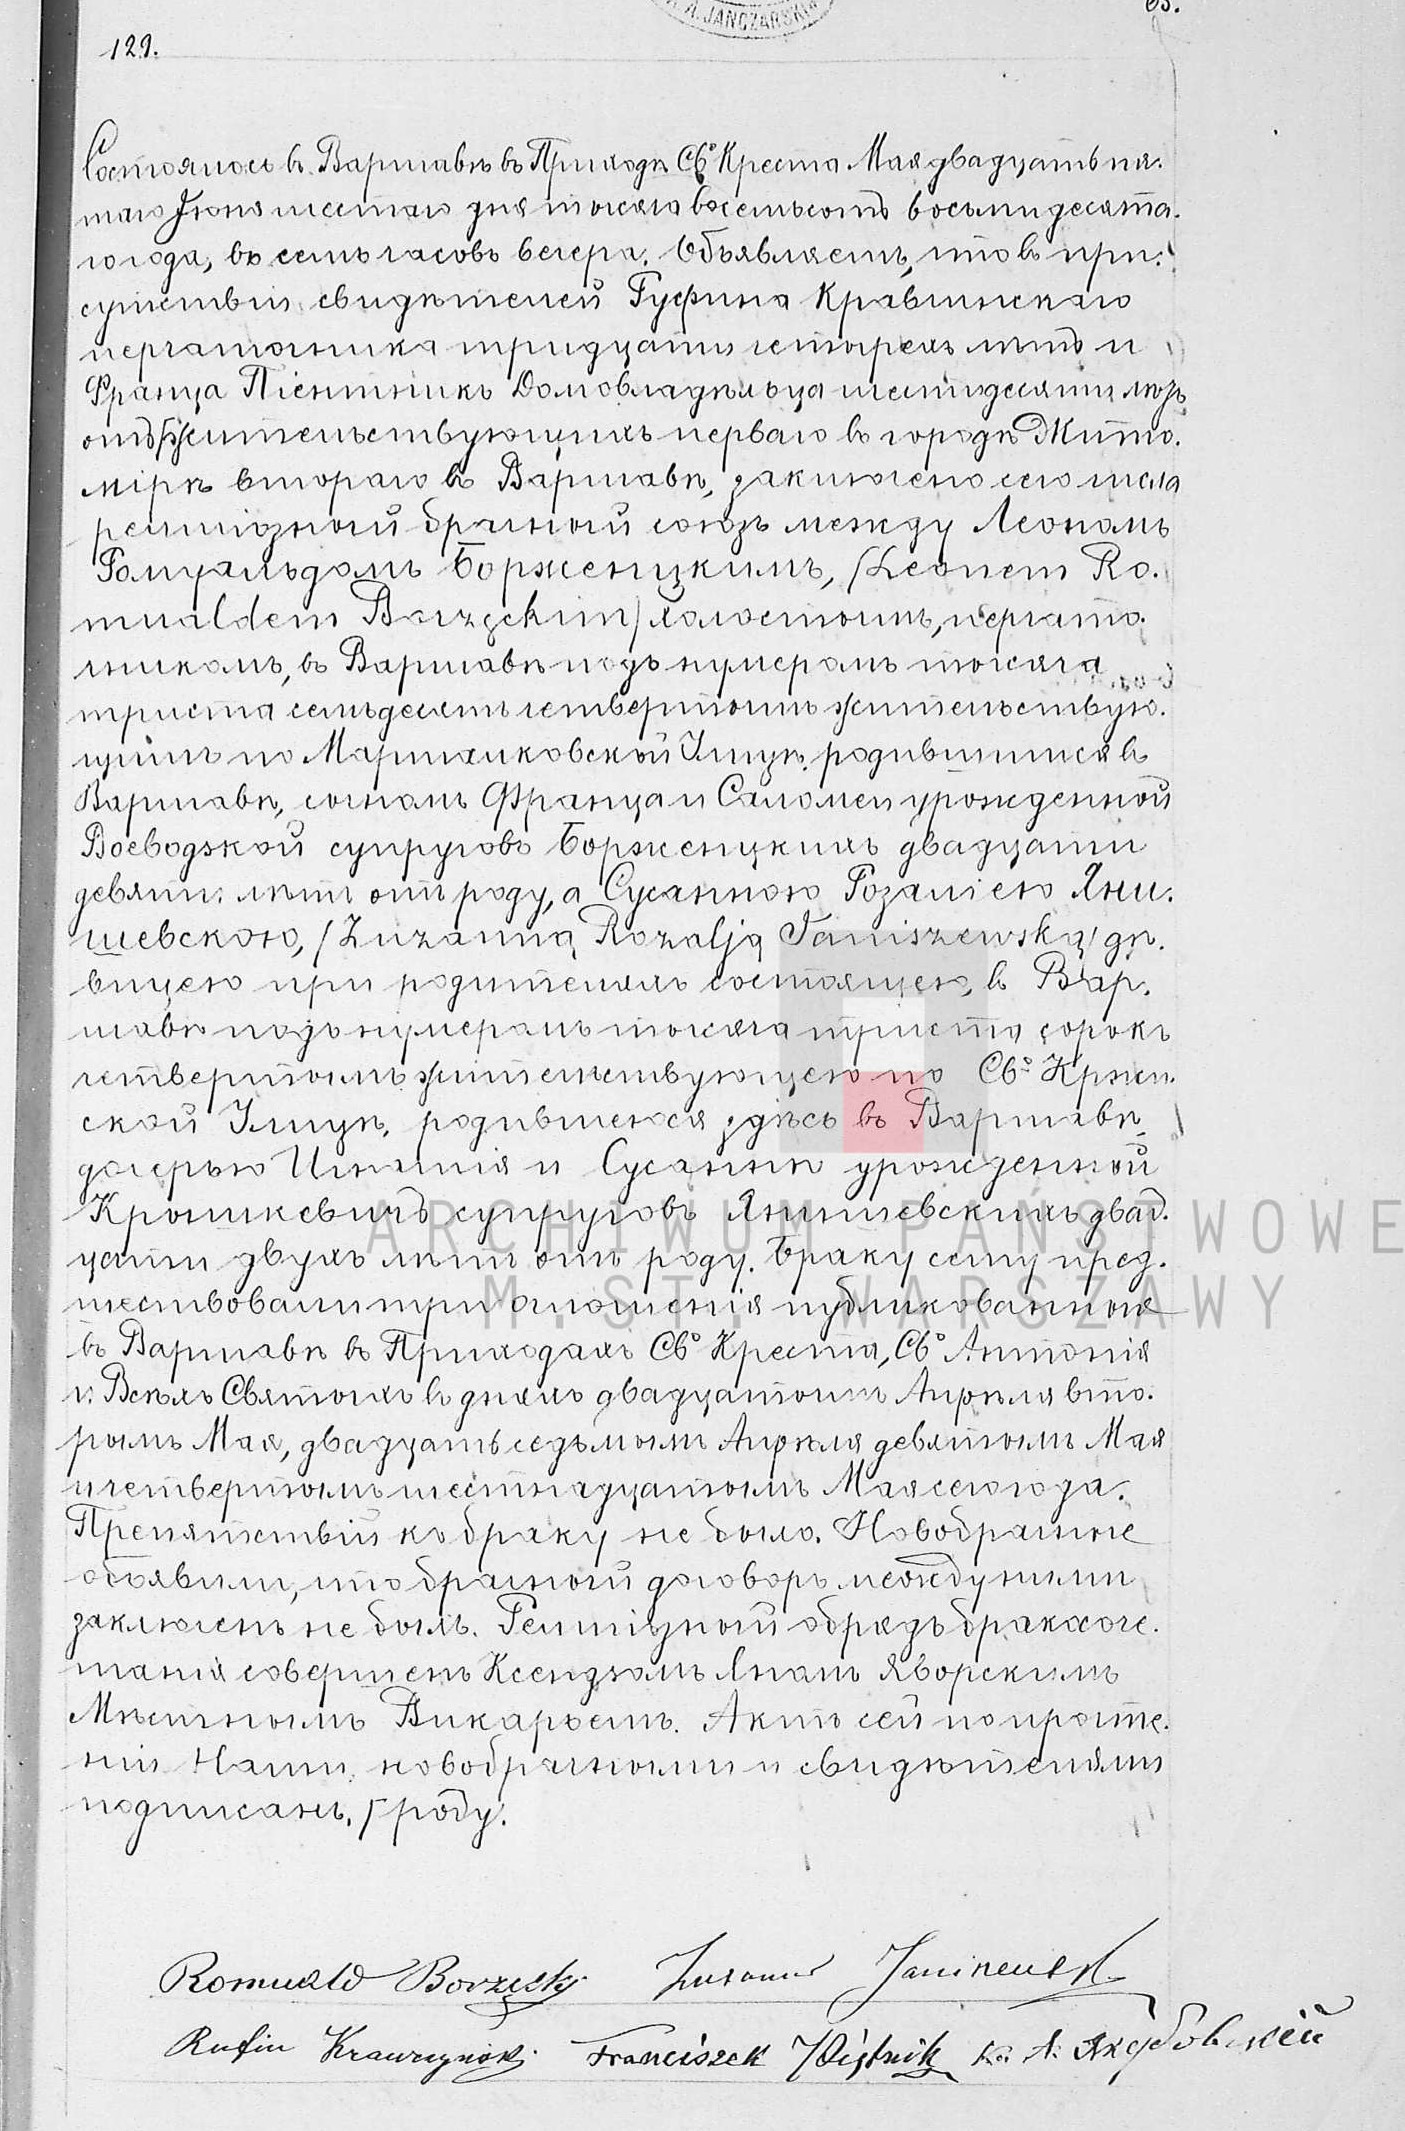 65.
A. JANCZARSKI
129.
Состоялось въ Варшавѣ въ Приходѣ Св° Креста Мая двадцать пя-
таго Іюня шестаго дня тысяча восемьсотъ восьмидесята-
го года, въ семь часовъ вечера. Объявляемъ, что въ при-
сутствіи свидѣтелей Руфина Кравчинскаго
перчаточника тридцати четырехъ лѣтъ и
Франца Піентникъ Домовладѣльца шестидесяти лѣтъ
отъ / жительствующихъ перваго въ городѣ Жито-
мірѣ втораго въ Варшавѣ, заключено сего числа
религіозный брачный союзъ между Леономъ
Ромуальдомъ Борженцкимъ, /Leonem Ro-
mualdem Borzęckim/ холостымъ, перчато-
чникомъ, въ Варшавѣ подъ нумеромъ тысяча
триста семьдесятъ четвертымъ жительствую-
щимъ по Маршалковской Улицѣ, родившимся въ
Варшавѣ, сыномъ Франца и Саломеи урожденной
Воеводзкой супруговъ Борженцкихъ двадцати
девяти лѣтъ отъ роду, а Сусанною Розаліею Яни-
шевскою, /Zuzanną Rozalją Janiszewską/ дѣ-
вицею при родителяхъ состоящею, въ Вар-
шавѣ подъ нумеромъ тысяча триста сорокъ
четвертымъ жительствующею по Св° Кржи-
ской Улицѣ, родившеюся здѣсь въ Варшавѣ
дочерью Игнатія и Сусанны урожденной
супруговъ Янишевскихъ двад-
цати двухъ лѣтъ отъ роду. Браку сему пред-
шествовали три оглашенія публикованные
въ Варшавѣ въ Приходахъ Св° Креста, Св° Антонія
и Всѣхъ Святыхъ въ дняхъ двадцатомъ Апрѣля вто-
рымъ Мая, двадцать седьмымъ Апрѣля девятымъ Мая
и четвертымъ шестнадцатымъ Мая сего года.
Препятствій къ браку не было. Новобрачные
объявили, что брачный договоръ между ними
заключенъ не былъ. Религіозный обрядъ бракосоче-
танія совершенъ Ксендзомъ Яномъ Яворскимъ
Мѣстнымъ Викаріемъ. Актъ сей по прочте-
ніи Нами, новобрачными и свидѣтелями
подписанъ. / роду.
Romuald Borzęcki Zuzanna Janiszewsk
Rufin Krawczyński Franciszek Piętnik Кс. А. Якубовскій
ARCHIWUM PAŃSTWOWE
M. ST. WARSZAWY